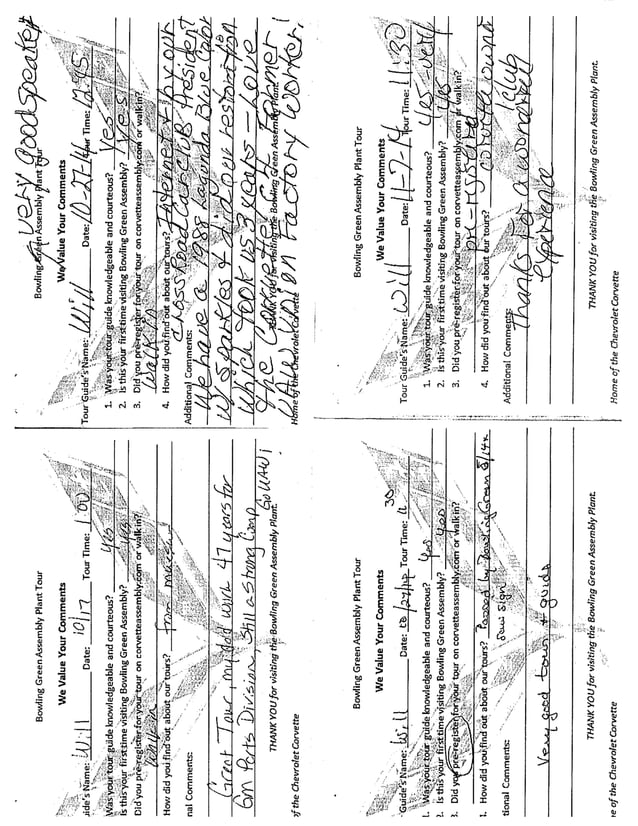 Bowling Green Assembly Plant Tour
We Value Your Comments
uide's Name: Will Date: 10/17 Tour Time: 1:00
Was your tour guide knowledgeable and courteous? yes
Is this your first time visiting Bowling Green Assembly? yes
Did you pre-register for your tour on corvetteassembly.com or walkin?
walk in
How did you find out about our tours? from
nal Comments:
Great Tour, my dad work 47 years for
Gm Parts Division, Still a Strong Comp
Go UAW!
THANK YOU for visiting the Bowling Green Assembly Plant.
of the Chevrolet Corvette
A very good speaker
Bowling Green Assembly Plant Tour
We Value Your Comments
Tour Guide's Name: Will Date: 10-27-14 Tour Time: 12:45
1. Was your tour guide knowledgeable and courteous? Yes
2. Is this your first time visiting Bowling Green Assembly? Yes
3. Did you pre-register for your tour on corvetteassembly.com or walkin?
Walk in
4. How did you find out about our tours? Internet & by our
Cross Road Car Club President
Additional Comments:
We have a 1988 Laguna Blue Color
w/ Sparkles & did a our restoration
which took us 3 years - Love
the Corvette
THANK YOU for visiting the Bowling Green Assembly Plant.
UAW Union Factory Worker!
Home of the Chevrolet Corvette
Bowling Green Assembly Plant Tour
We Value Your Comments
Guide's Name: Will Date: 10/24/14 Tour Time: 11:30
1. Was your tour guide knowledgeable and courteous? yes
2. Is this your first time visiting Bowling Green Assembly? yes
3. Did you pre-register for your tour on corvetteassembly.com or walkin?
4. How did you find out about our tours? Passed by Bowling Green 8/14 &
saw sign
tional Comments:
Very good tour & guide
THANK YOU for visiting the Bowling Green Assembly Plant.
me of the Chevrolet Corvette
Bowling Green Assembly Plant Tour
We Value Your Comments
Tour Guide's Name: Will Date: 11-7-14 Tour Time: 11:30
1. Was your tour guide knowledgeable and courteous? yes-very
2. Is this your first time visiting Bowling Green Assembly? yes
3. Did you pre-register for your tour on corvetteassembly.com or walkin?
pre-registered
4. How did you find out about our tours? corvette owner
club
Additional Comments:
Thanks for a wonderful
experience
THANK YOU for visiting the Bowling Green Assembly Plant.
Home of the Chevrolet Corvette